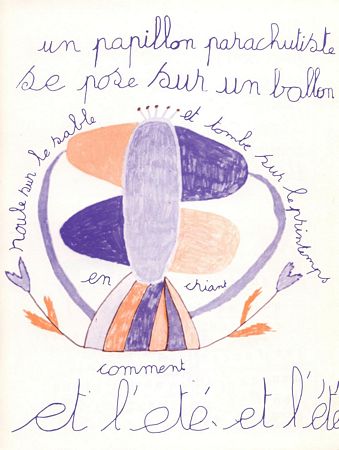 un papillon parachutiste
se pose sur un ballon
roule sur le sable
et tombe sur le printemps
en criant
comment
et l'été. et l'été